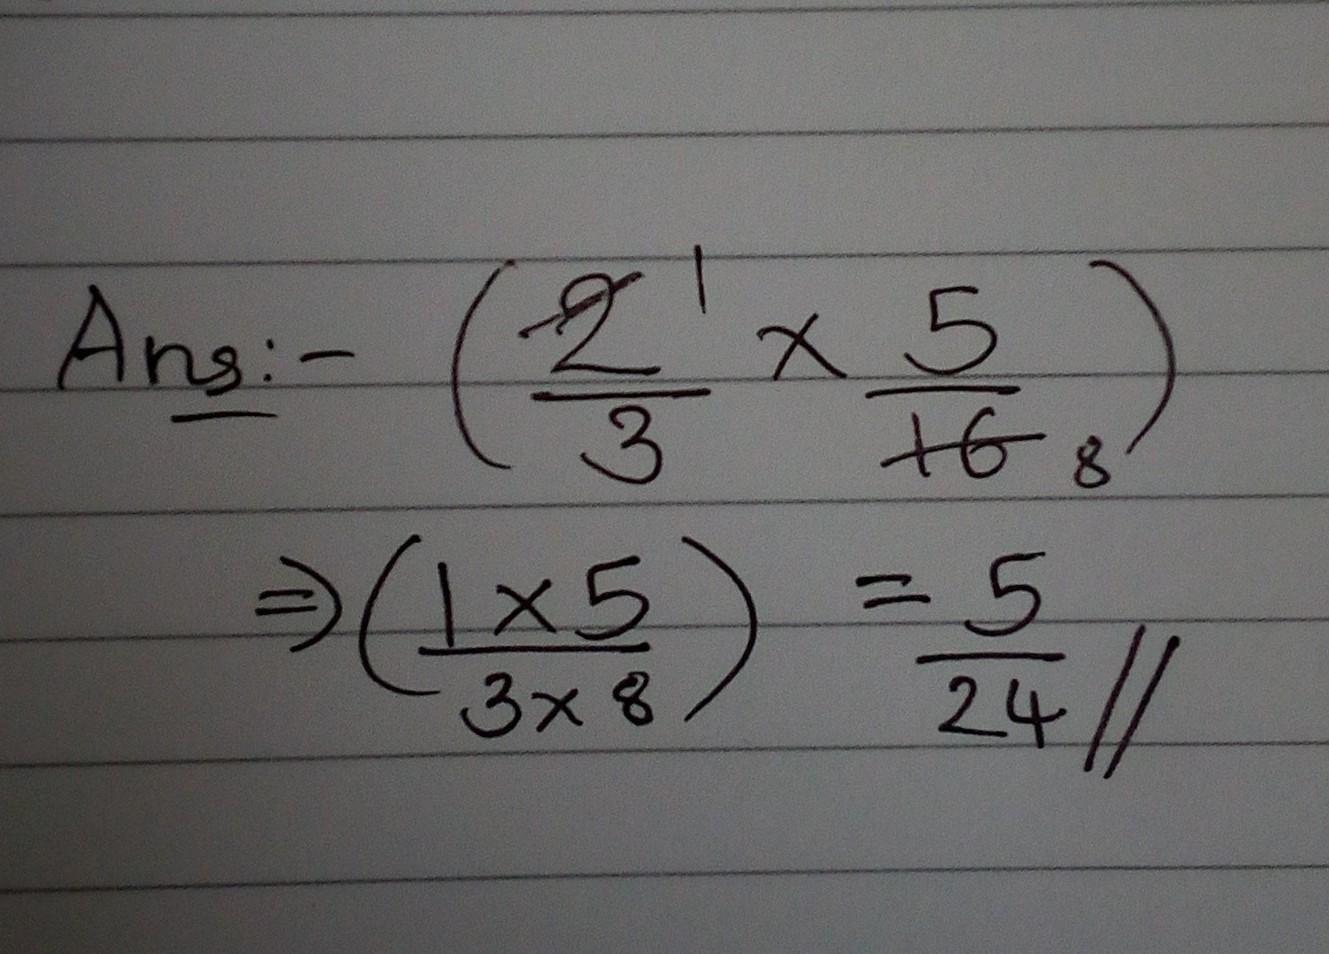 Ans:- (2/3 1 × 5/16 8)
⇒ (1 × 5 / 3 × 8) = 5/24 //